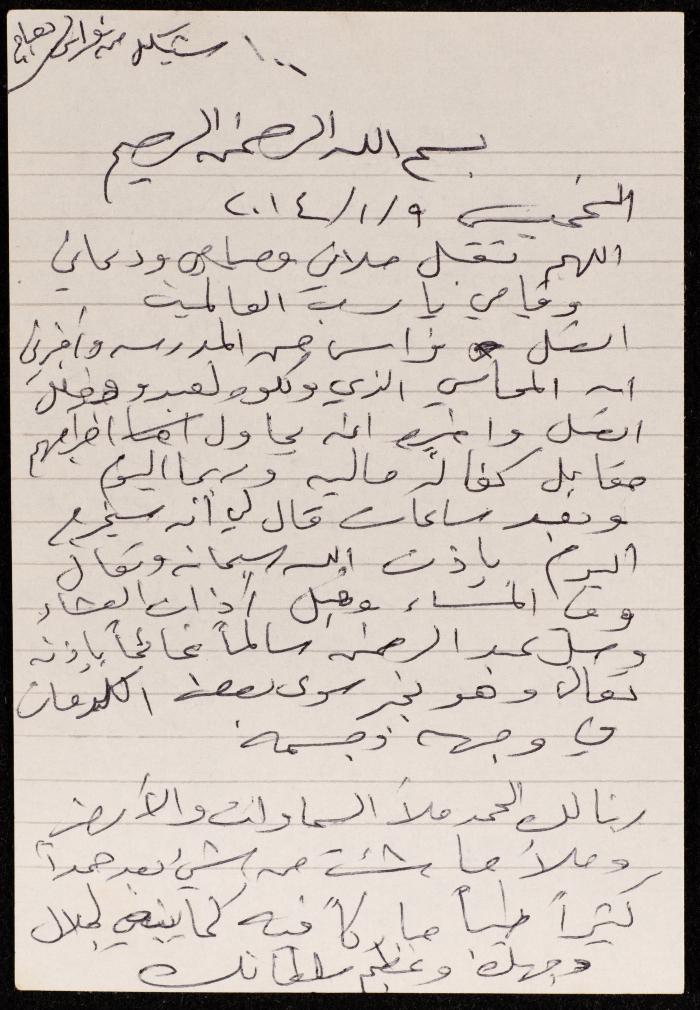 ١٠٠ شيكل من نواس
بسم الله الرحمن الرحيم
الخميس ٢٠١٤/١/٩
اللهم تقبل صلاتي وصيامي ودعائي
وقيامي يا رب العالمين
اتصل نواس من المدرسه وأخبرني
انه المحامي الذي وكلوه لعبدو وفضل
اتصل واخبره انه يحاول اخراجهم
مقابل كفاله ماليه وربما اليوم
وبعد ساعات قال لي أنه سيخرج
اليوم بإذن الله سبحانه وتعالى
وفي المساء وقبل اذان العشاء
وصل عبد الرحمن سالماً غانماً بإذنه
تعالى وهو بخير سوى بعض الكدمات
في وجهه وجسمه
ربنا لك الحمد ملأ السماوات والأرض
وملأ ما شئت من شيء بعد حمداً
كثيراً طيباً مباركاً فيه كما ينبغي لجلال
وجهك وعظيم سلطانك